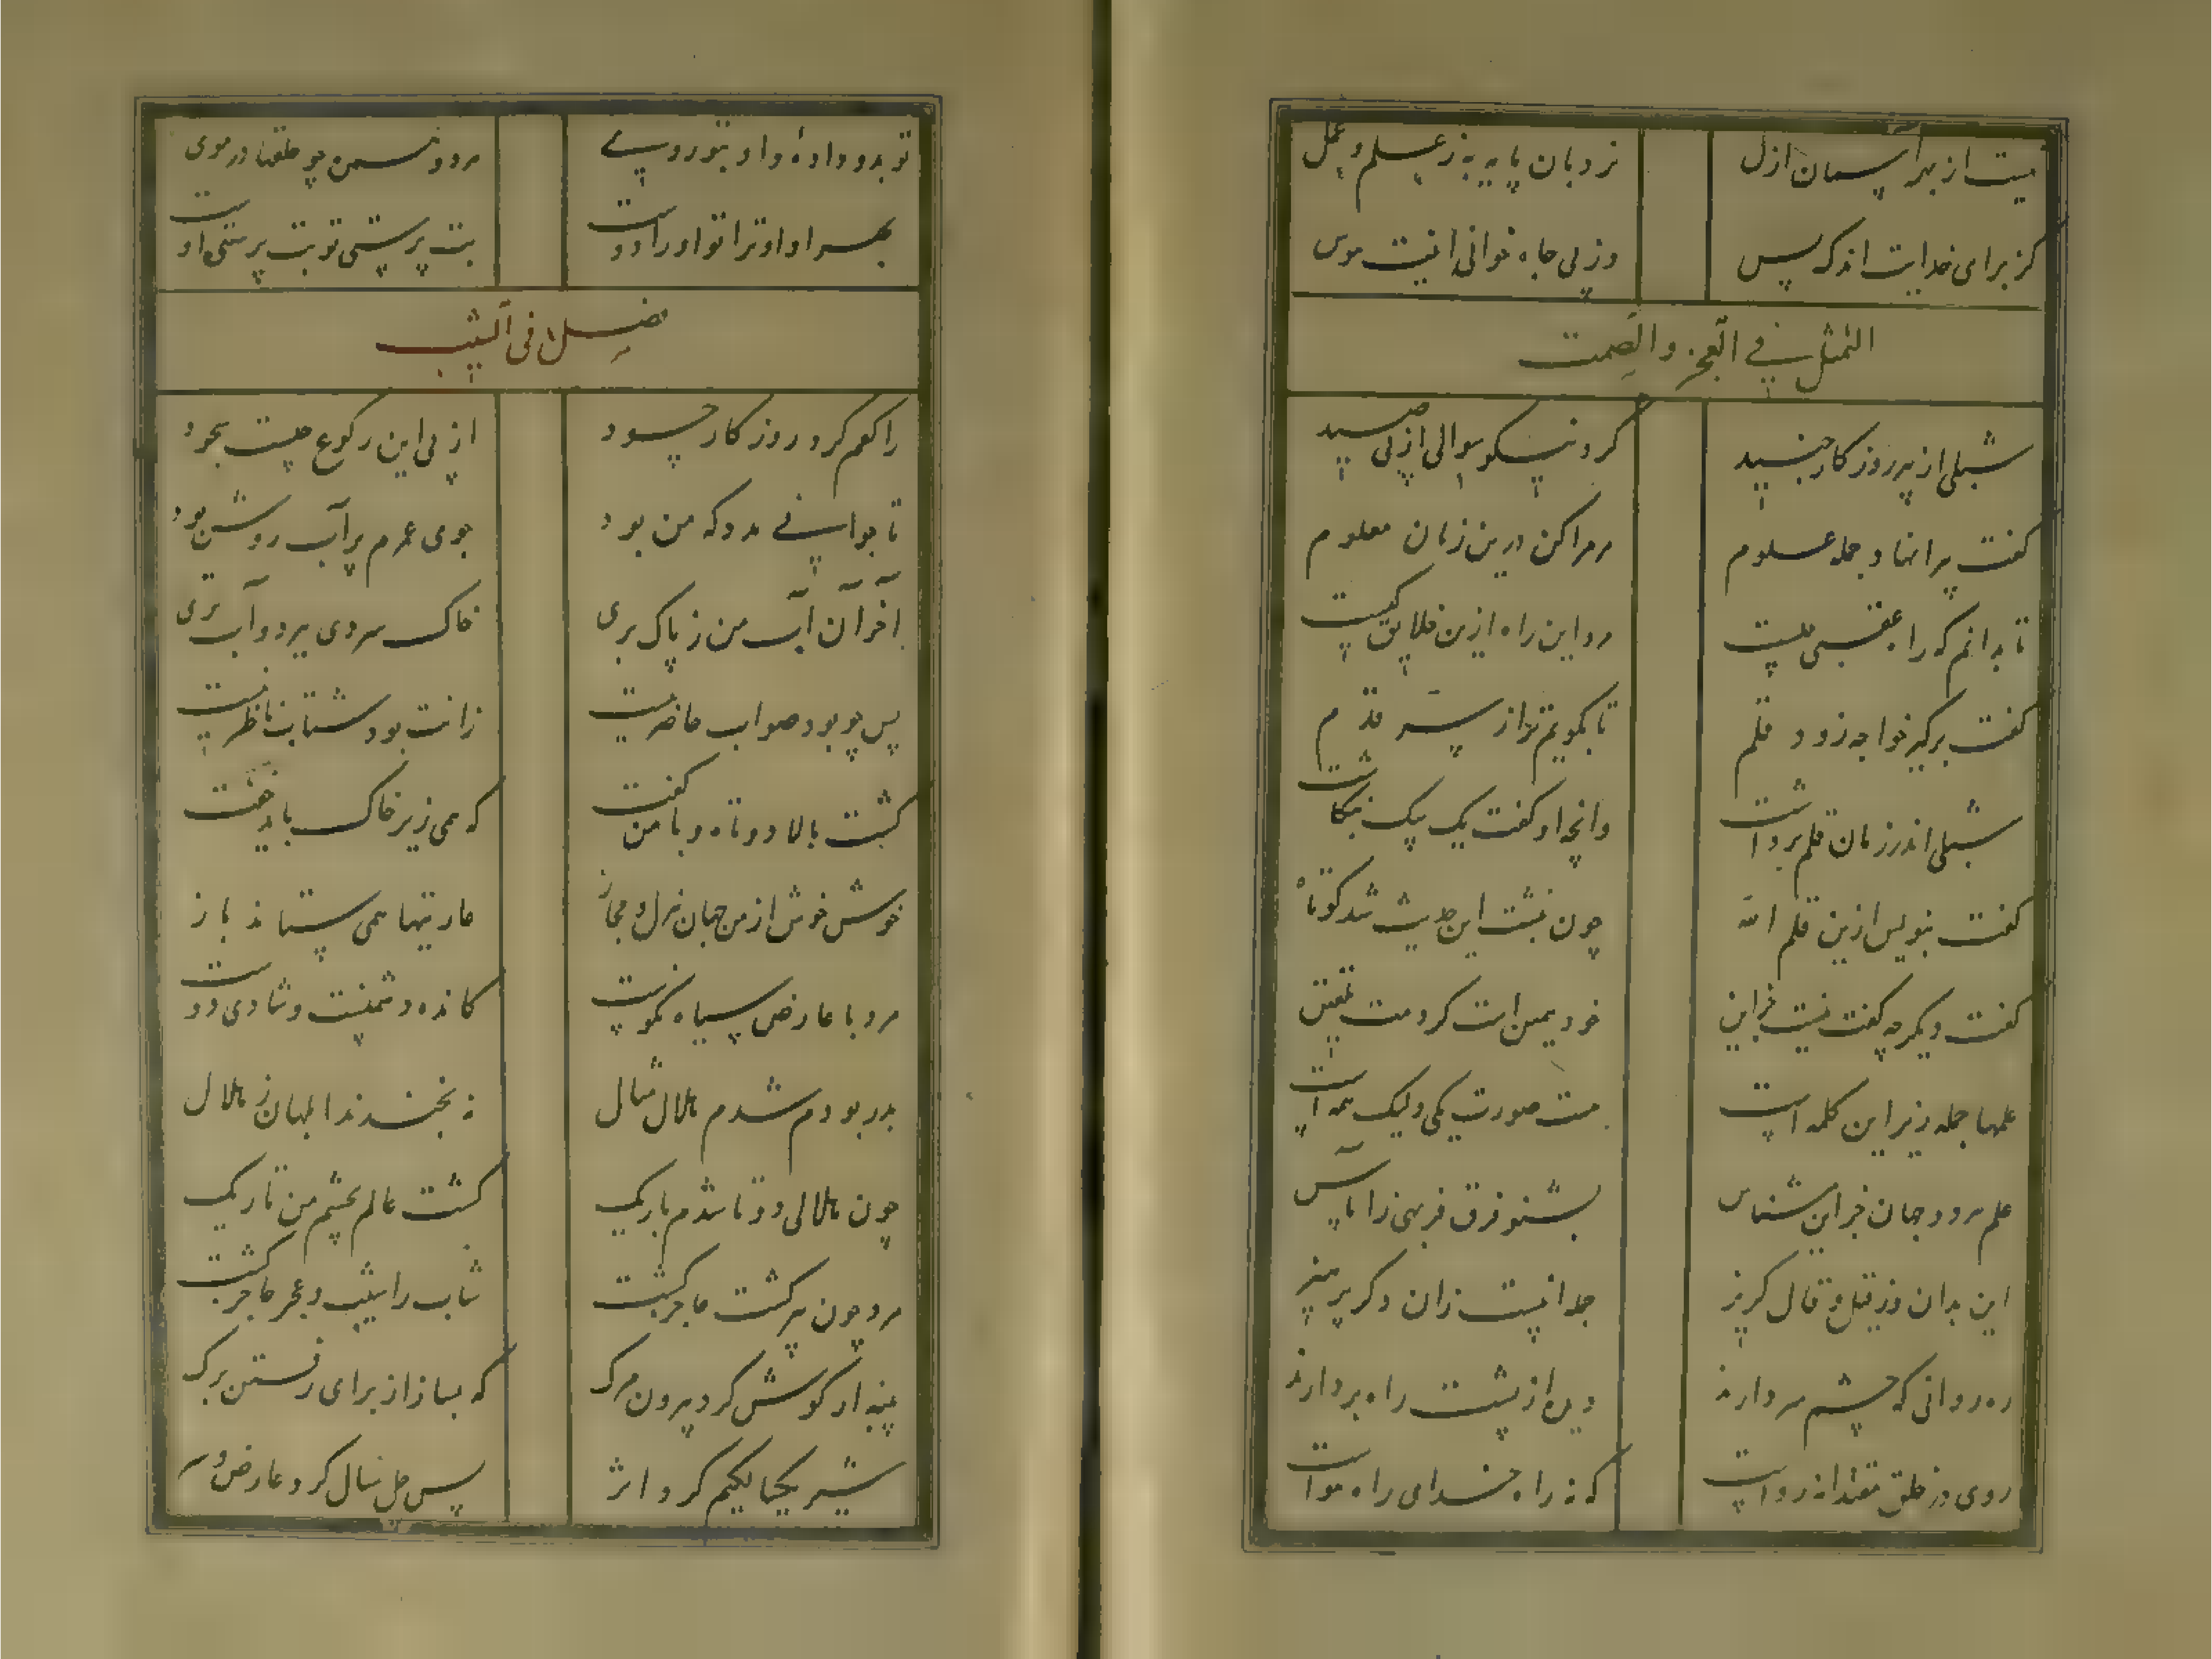 نیست از بهر آسمان ازل نردبان پایه به ز علم و عمل
کز برای خدایت اندک پس وز پی جاه خوانی اینت موس
التمثل فی العجز و الصمت
شبلی از پیر روزکار جنید کرد نیکو سوالی از پی صید
کفت پیرا نهاد جمله علوم مر مرا کن درین زمان معلوم
تا بدانم که راه عقبی چیست مرد این راه ازین خلایق کیست
کفت برکیر خواجه زود قلم تا بکویم ترا ز سر قدم
شبلی اندر زمان قلم برداشت وانچه او کفت یک بیک بنکاشت
کفت بنویس ازین قلم الله چون نبشت این حدیث شد کوتاه
کفت دیکر چه کفت نیست جز این خود همین است کردمت تلقین
علمها جمله زیر این کلمه است هست صورت یکی ولیک همه است
علم هر دو جهان جز این مشناس بشنو فرق فربهی ز آماس
این بدان وز قیل و قال کریز جد اینست زان دکر پرهیز
ره روانی که چشم سر دارند دیده از پشت راه بردارند
روی در خلق مقتدا نه رواست که نه راه خدای راه هواست
تو بدو داده و او بتو روسپی مرد و سمن چو حلقها در موی
بهر او او ترا تو او را دوست بت پرستی تو بت پرستی اوست
فصل فی الشیب
راکعم کرد روزکار حسود از پی این رکوع چیست سجود
تا جوانی مدد که من بود جوی عمرم پر آب روشن بود
آخر آن آب من ز پاک بری خاک سردی ببرد و آب تری
پس چو بود صواب حاضر نیست زانت بود شتاب ناظر نیست
کشت بالا دوتاه و با من کفت که همی زیر خاک باید خفت
خوش خوش از من جهان هزل و مجاز عاریتها همی ستاند باز
مرد با عارض سیاه نکوست کانده دشمنست و شادی دوست
بدر بودم شدم هلال مثال نه بخندند ابلهان ز هلال
چون هلالی دوتا شدم باریک کشت عالم بچشم من تاریک
مرد چون پیر کشت عاجز کشت شاب را شیب و عجز حاجز کشت
پنبه از کوش کرد بیرون مرک که بساز از برای رفتن برک
شیر یحیا بکیم کرد اثر پس چل سال کرد عارض و سر